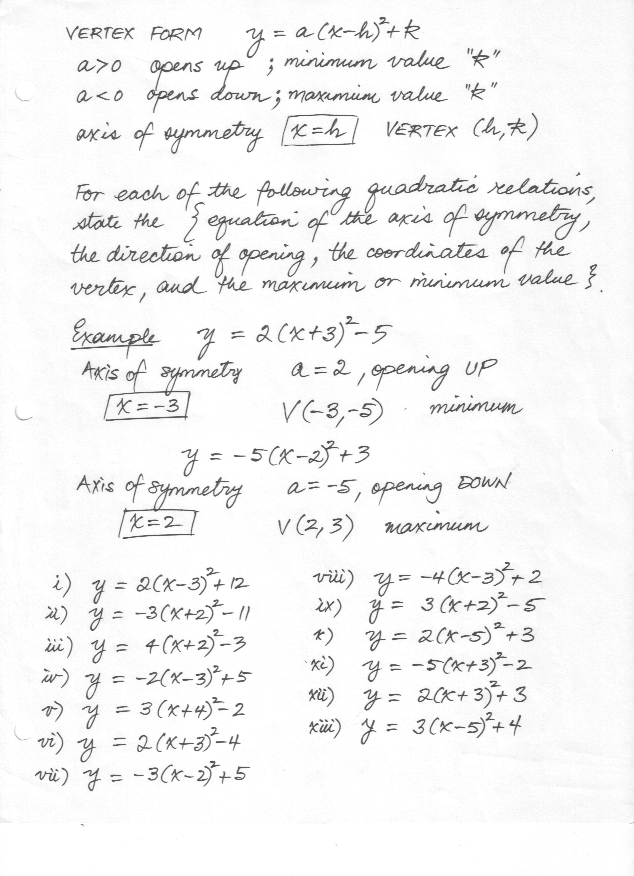 VERTEX FORM y = a(x-h)²+k
a>0 opens up ; minimum value "k"
a<0 opens down ; maximum value "k"
axis of symmetry x=h VERTEX (h,k)
For each of the following quadratic relations,
state the { equation of the axis of symmetry,
the direction of opening, the coordinates of the
vertex, and the maximum or minimum value }.
Example y = 2(x+3)²-5
Axis of symmetry a=2, opening UP
x=-3 V(-3,-5) minimum
y = -5(x-2)²+3
Axis of symmetry a=-5, opening DOWN
x=2 V(2,3) maximum
i) y = 2(x-3)²+12
ii) y = -3(x+2)²-11
iii) y = 4(x+2)²-3
iv) y = -2(x-3)²+5
v) y = 3(x+4)²-2
vi) y = 2(x+3)²-4
vii) y = -3(x-2)²+5
viii) y = -4(x-3)²+2
ix) y = 3(x+2)²-5
x) y = 2(x-5)²+3
xi) y = -5(x+3)²-2
xii) y = 2(x+3)²+3
xiii) y = 3(x-5)²+4